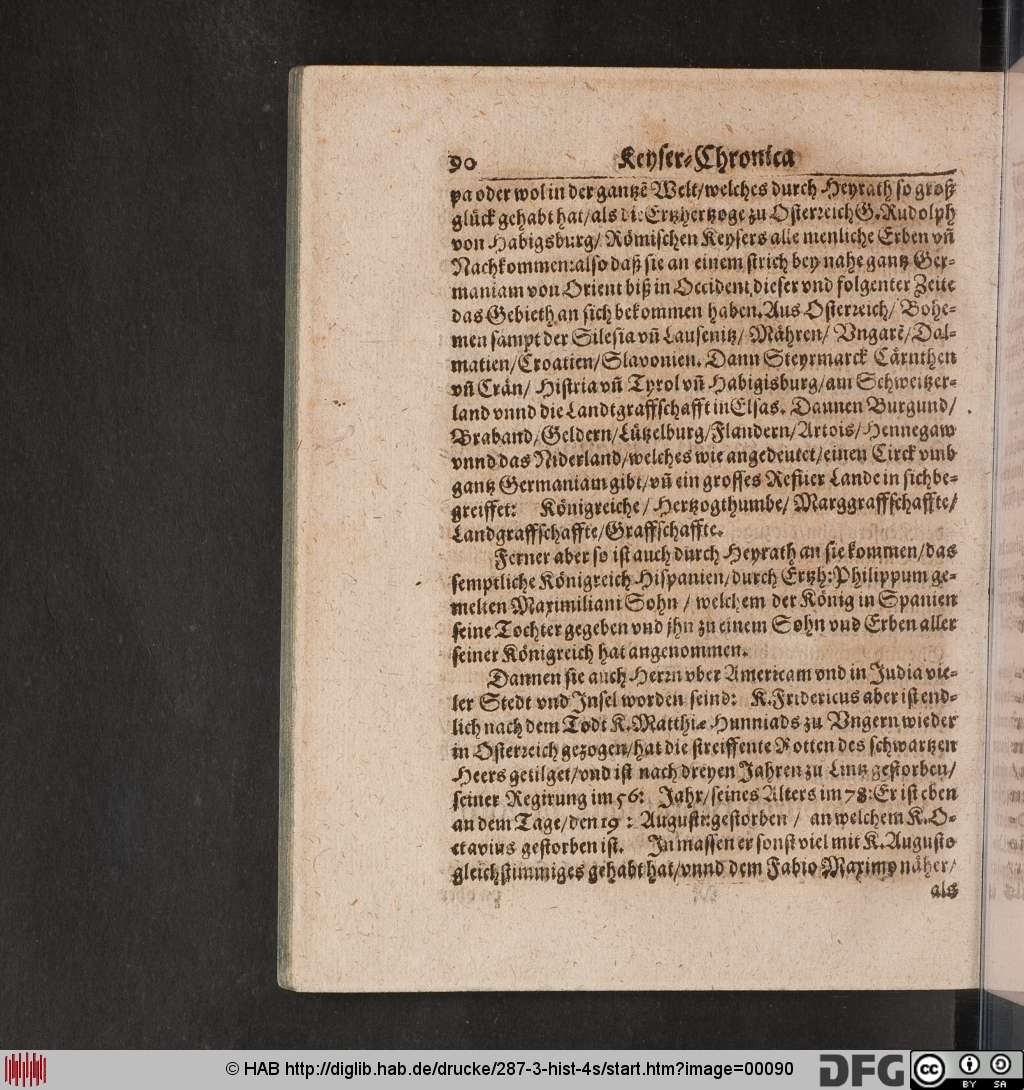 90 Keyser-Chronica
pa oder wol in der gantzẽ Welt/welches durch Heyrath so groß
glück gehabt hat/als die Ertzhertzoge zu Osterreich G. Rudolph
von Habigsburg/ Römischen Keysers alle menliche Erben vñ
Nachkommen: also daß sie an einem strich bey nahe gantz Ger-
maniam von Orient biß in Occident dieser vnd folgenter Zeite
das Gebieth an sich bekommen haben. Aus Osterreich/ Bohe-
men sampt der Silesia vñ Lausenitz/ Mähren/ Vngarẽ/Dal-
matien/Croatien/Slavonien. Dann Steyrmarck Cärnthen
vñ Crän/ Histria vñ Tyrol vñ Habigisburg/am Schweitzer-
land vnnd die Landtgraffschafft in Elsas. Dannen Burgund/
Braband/Geldern/Lützelburg/Flandern/Artois/Hennegaw
vnnd das Niderland/welches wie angedeutet/einen Circk vmb
gantz Germaniam gibt/vñ ein grosses Lande in sich be-
greiffet: Königreiche/ Hertzogthumbe/ Marggraffschaffte/
Landgraffschaffte/Graffschaffte.
Ferner aber so ist auch durch Heyrath an sie kommen/das
semptliche Königreich Hispanien/durch Ertzh: Philippum ge-
melten Maximiliani Sohn/ welchem der König in Spanien
seine Tochter gegeben vnd jhn zu einem Sohn vnd Erben aller
seiner Königreich hat angenommen.
Dannen sie auch Herrn vber Americam vnd in India vie-
ler Stedt vnd Insel worden seind: K. Fridericus aber ist end-
lich nach dem Todt K. Matthiæ Hunniads zu Vngern wieder
in Osterreich gezogen/hat die streiffente Rotten des schwartzen
Heers getilget/vnd ist nach dreyen Jahren zu Lintz gestorben/
seiner Regirung im 56: Jahr/seines Alters im 78: Er ist eben
an dem Tage/den 19: Augusti: gestorben/ an welchem K. O-
ctavius gestorben ist. In massen er sonst viel mit K. Augusto
gleichstimmiges gehabt hat/vnnd dem Fabio Maximo näher/
als
© HAB http://diglib.hab.de/drucke/287-3-hist-4s/start.htm?image=00090
DFG cc BY SA